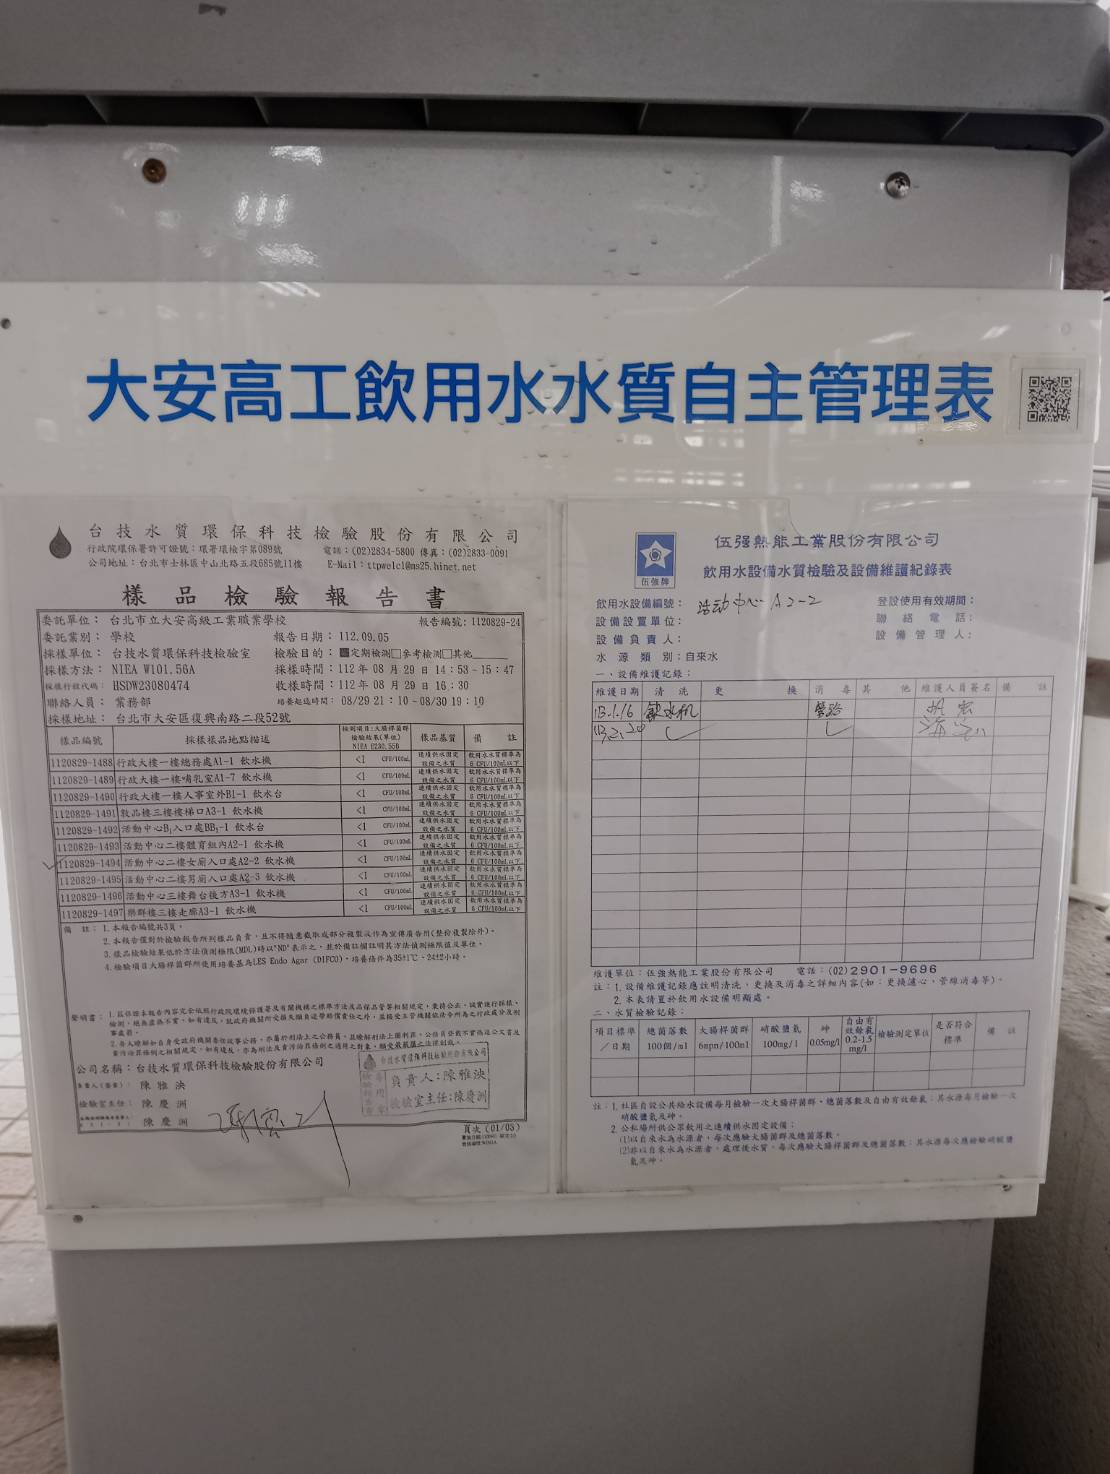 大安高工飲用水水質自主管理表
台技水質環保科技檢驗股份有限公司
行政院環保署許可證號：環署環檢字第089號 電話：(02)2834-5800 傳真：(02)2833-0091
公司地址：台北市士林區中山北路五段685號11樓 E-Mail：ttpwelcl@ms25.hinet.net
樣品檢驗報告書
委託單位：台北市立大安高級工業職業學校 報告編號：1120829-24
委託業別：學校 報告日期：112.09.05
採樣單位：台技水質環保科技檢驗室 檢驗目的：■定期檢測□參考檢測□其他
採樣方法：NIEA W101.56A 採樣時間：112年08月29日14：53-15：47
採樣行程代碼：HSDW23080474 收樣時間：112年08月29日16：30
聯絡人員：業務部 培養起迄時間：08/29 21：10-08/30 19：10
採樣地址：台北市大安區復興南路二段52號
樣品編號 採樣樣品地點描述 檢測項目：大腸桿菌群 檢驗結果(單位) NIEA E230.55B 樣品基質 備註
1120829-1488 行政大樓一樓總務處A1-1 飲水機 <1 CFU/100mL 連續供水固定設備之水質 飲用水水質標準為6 CFU/100mL以下
1120829-1489 行政大樓一樓哺乳室A1-7 飲水機 <1 CFU/100mL 連續供水固定設備之水質 飲用水水質標準為6 CFU/100mL以下
1120829-1490 行政大樓一樓人事室外B1-1 飲水台 <1 CFU/100mL 連續供水固定設備之水質 飲用水水質標準為6 CFU/100mL以下
1120829-1491 敦品樓三樓樓梯口A3-1 飲水機 <1 CFU/100mL 連續供水固定設備之水質 飲用水水質標準為6 CFU/100mL以下
1120829-1492 活動中心B1入口處BB1-1 飲水台 <1 CFU/100mL 連續供水固定設備之水質 飲用水水質標準為6 CFU/100mL以下
1120829-1493 活動中心二樓體育組內A2-1 飲水機 <1 CFU/100mL 連續供水固定設備之水質 飲用水水質標準為6 CFU/100mL以下
1120829-1494 活動中心二樓女廁入口處A2-2 飲水機 <1 CFU/100mL 連續供水固定設備之水質 飲用水水質標準為6 CFU/100mL以下
1120829-1495 活動中心二樓男廁入口處A2-3 飲水機 <1 CFU/100mL 連續供水固定設備之水質 飲用水水質標準為6 CFU/100mL以下
1120829-1496 活動中心三樓舞台後方A3-1 飲水機 <1 CFU/100mL 連續供水固定設備之水質 飲用水水質標準為6 CFU/100mL以下
1120829-1497 樂群樓三樓走廊A3-1 飲水機 <1 CFU/100mL 連續供水固定設備之水質 飲用水水質標準為6 CFU/100mL以下
備註：1.本報告編號共3頁。
2.本報告僅對於檢驗報告所列樣品負責，且不得隨意截取或部分複製以作為宣傳廣告用(整份複製除外)。
3.樣品檢驗結果低於方法偵測極限(MDL)時以"ND"表示之，並於備註欄註明其方法偵測極限值及單位。
4.檢驗項目大腸桿菌群所使用培養基為LES Endo Agar (DIFCO)，培養條件為35±1℃、24±2小時。
聲明書：
公司名稱：台技水質環保科技檢驗股份有限公司
負責人(簽章)：陳雅泱
檢驗室主任：陳慶洲
陳慶洲
台技水質環保科技檢驗股份有限公司
負責人：陳雅泱
檢驗室主任：陳慶洲
頁次(01/03)
伍強牌
伍强熱能工業股份有限公司
飲用水設備水質檢驗及設備維護紀錄表
飲用水設備編號：活动中心A2-2 登設使用有效期間：
設備設置單位： 聯絡電話：
設備負責人： 設備管理人：
水源類別：自來水
一、設備維護記錄：
維護日期 清洗 更換 消毒 其他 維護人員簽名 備註
113.1.16 飲水机 管路
維護單位：伍強熱能工業股份有限公司 電話：(02)2901-9696
註：1.設備維護記錄應註明清洗，更換及消毒之詳細內容(如：更換濾心，管線消毒等)。
2.本表請置於飲用水設備明顯處。
二、水質檢驗記錄：
項目標準/日期 總菌落數 100個/ml 大腸桿菌群 6mpn/100ml 硝酸鹽氮 100mg/l 砷 0.05mg/l 自由有效餘氯 0.2-1.5 mg/l 檢驗測定單位 是否符合標準 備註
註：1.社區自設公共給水設備每月檢驗一次大腸桿菌群、總菌落數及自由有效餘氯；其水源每月檢驗一次
硝酸鹽氮及砷。
2.公私場所供公眾飲用之連續供水固定設備：
(1)以自來水為水源者，每次應驗大腸桿菌群及總菌落數。
(2)非以自來水為水源者，處理後水質，每次應驗大腸桿菌群及總菌落數；其水源每次應檢驗硝酸鹽
氮及砷。